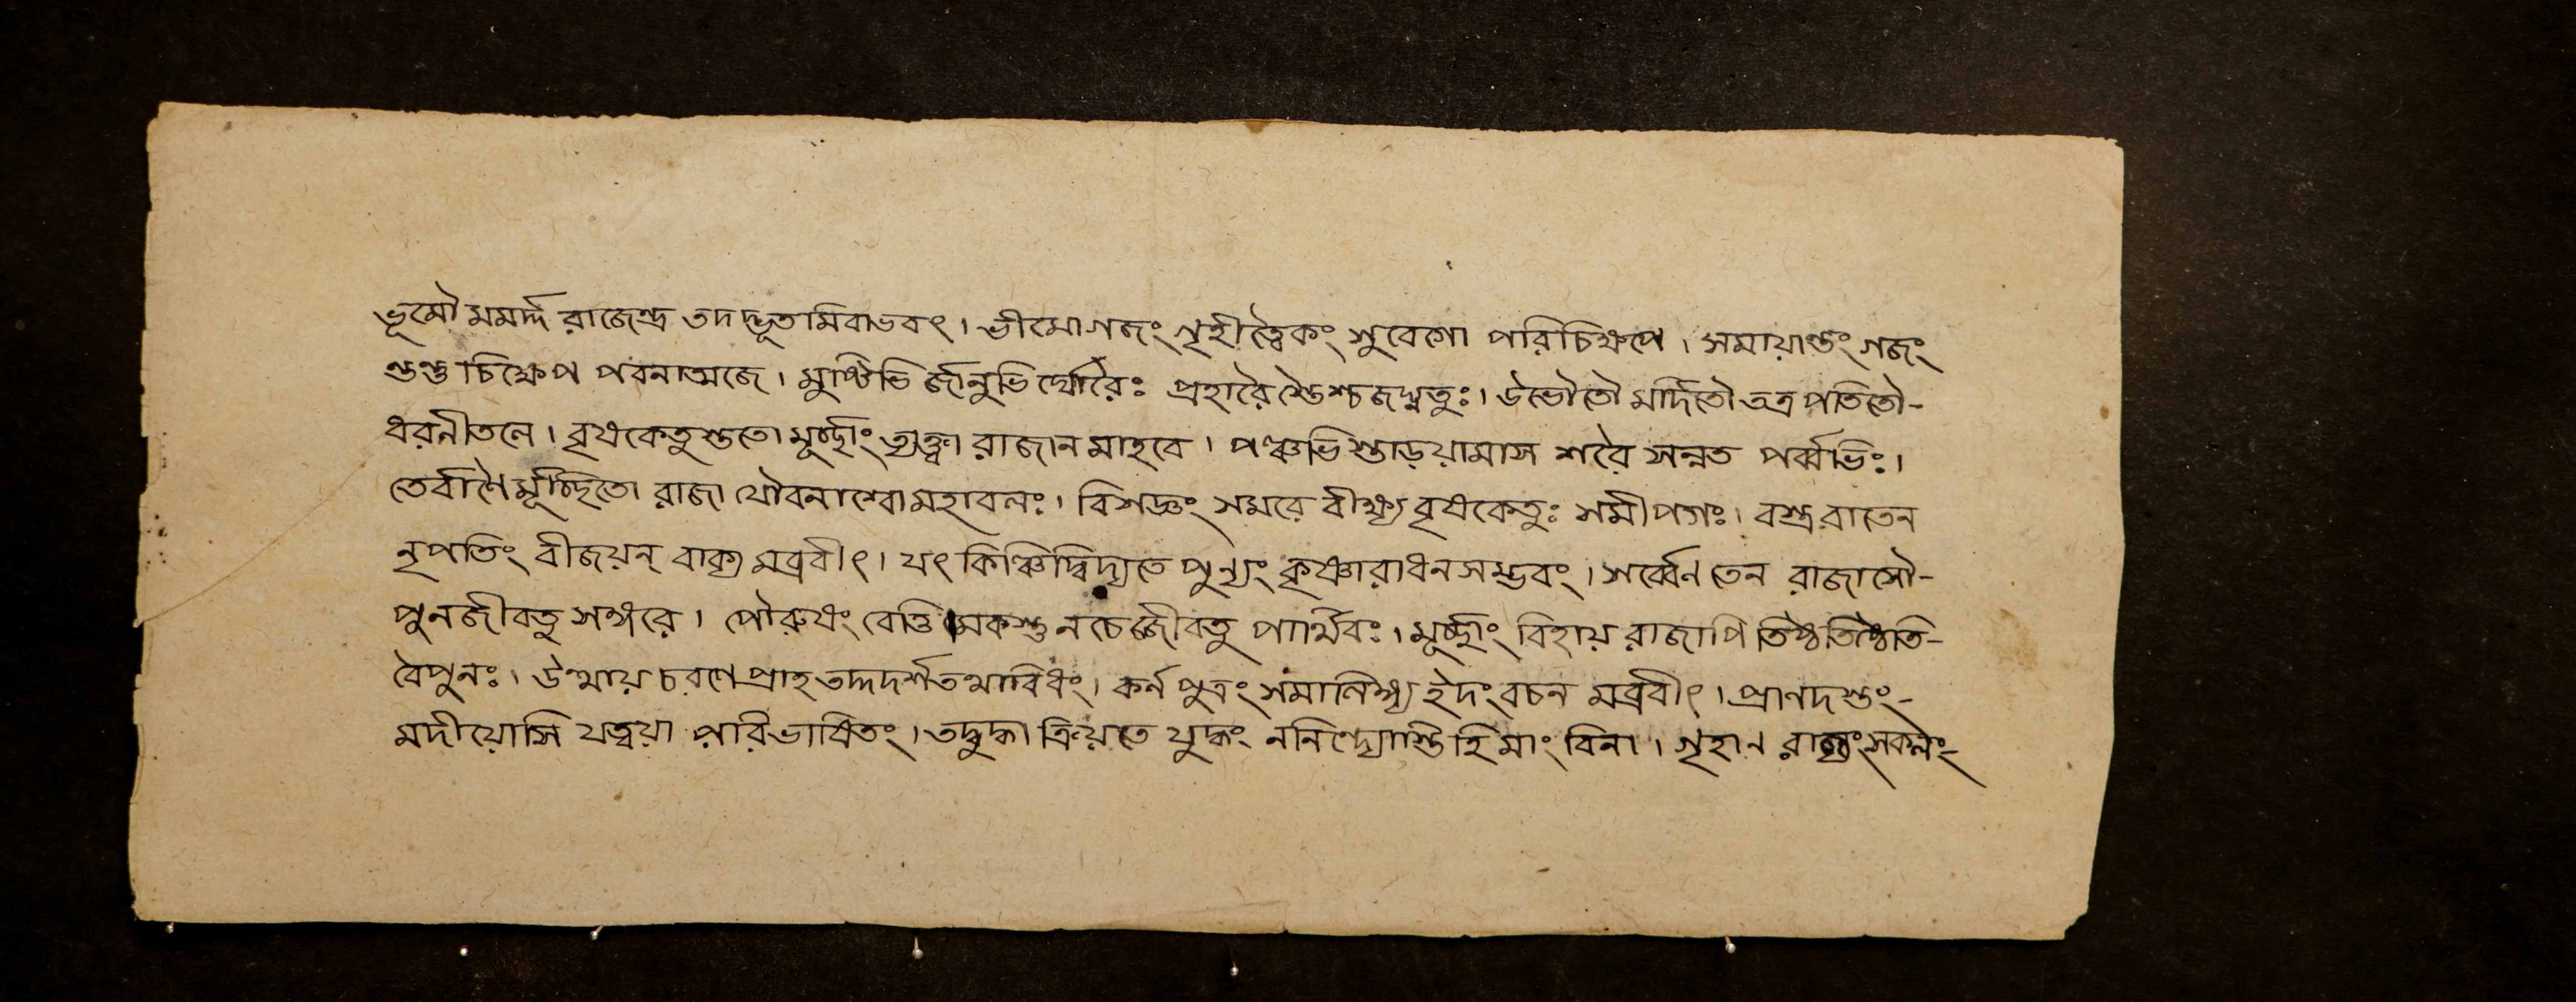 ভূমৌ মমর্দ্দ রাজেন্দ্র তদদ্ভুতমিবাভবৎ। ভীমো গজং গৃহীত্বৈকং সুবেগো পরিচিক্ষপে। সমায়ান্তং গজং
শুণ্ডা চিক্ষেপ পবনাত্মজে। মুষ্টিভি র্জানুভি র্ঘোরৈঃ প্রহারৈ স্তৈশ্চ জঘ্নতুঃ। উভৌ তৌ মর্দিতৌ তত্র পতিতৌ-
ধরনীতলে। বৃষকেতুস্ততো মূর্চ্ছাং ত্যক্ত্বা রাজান মাহবে। পঞ্চভি স্তাড়য়ামাস শরৈ সন্নত পর্ব্বভিঃ।
তের্বাণৈ র্মূর্চ্ছিতো রাজা যৌবনাশ্বো মহাবলঃ। বিসজ্ঞং সমরে বীক্ষ্য বৃষকেতুঃ সমীপগঃ। বস্ত্রবাতেন
নৃপতিং বীজয়ন্ বাক্য মব্রবীৎ। যৎ কিঞ্চিদ্বিদ্যতে পুন্যং কৃষ্ণারাধন সম্ভবং। সর্ব্বেণ তেন রাজাসৌ-
পুনর্জীবতু সঙ্গরে। পৌরুষং বেত্তি মে কস্তু ন চেজ্জীবতু পার্থিবঃ। মূর্চ্ছাং বিহায় রাজাপি তিষ্ঠ তিষ্ঠেতি-
বৈ পুনঃ। উত্থায় চরণে প্রাহ তদ্দদর্শ তথাবিধং। কর্ন পুত্রং সমালিঙ্গ্য ইদং বচন মব্রবীৎ। প্রাণদস্ত্বং-
মদীয়োসি যত্বয়া পরিভাষিতং। তদ্বুদ্ধা ক্রিয়তে যুদ্ধং ন নিন্দ্যোস্তি হি মাং বিনা। গৃহাণ রাজ্যং সকলং-